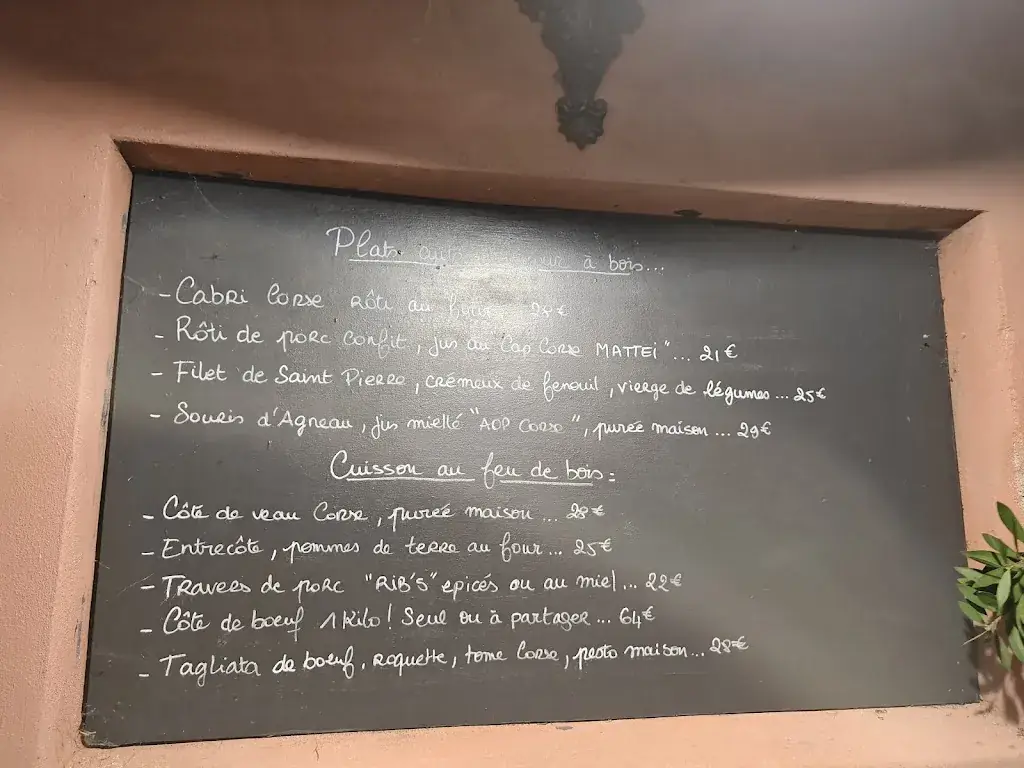 Plats à bois...
- Cabri Corse rôti au four
- Rôti de porc confit, jus au Cap Corse MATTEI"... 21€
- Filet de Saint Pierre, crémeux de fenouil, vierge de légumes... 25€
- Souris d'Agneau, jus miellé "AOP Corse", purée maison... 29€
Cuisson au feu de bois:
- Côte de veau Corse, pureé maison... 28€
- Entrecôte, pommes de terre au four... 25€
- Travers de porc "RiB'S" epicés ou au miel... 22€
- Côte de boeuf 1 Kilo! Seul ou à partager... 64€
- Tagliata de boeuf, roquette, tome Corse, pesto maison... 28€